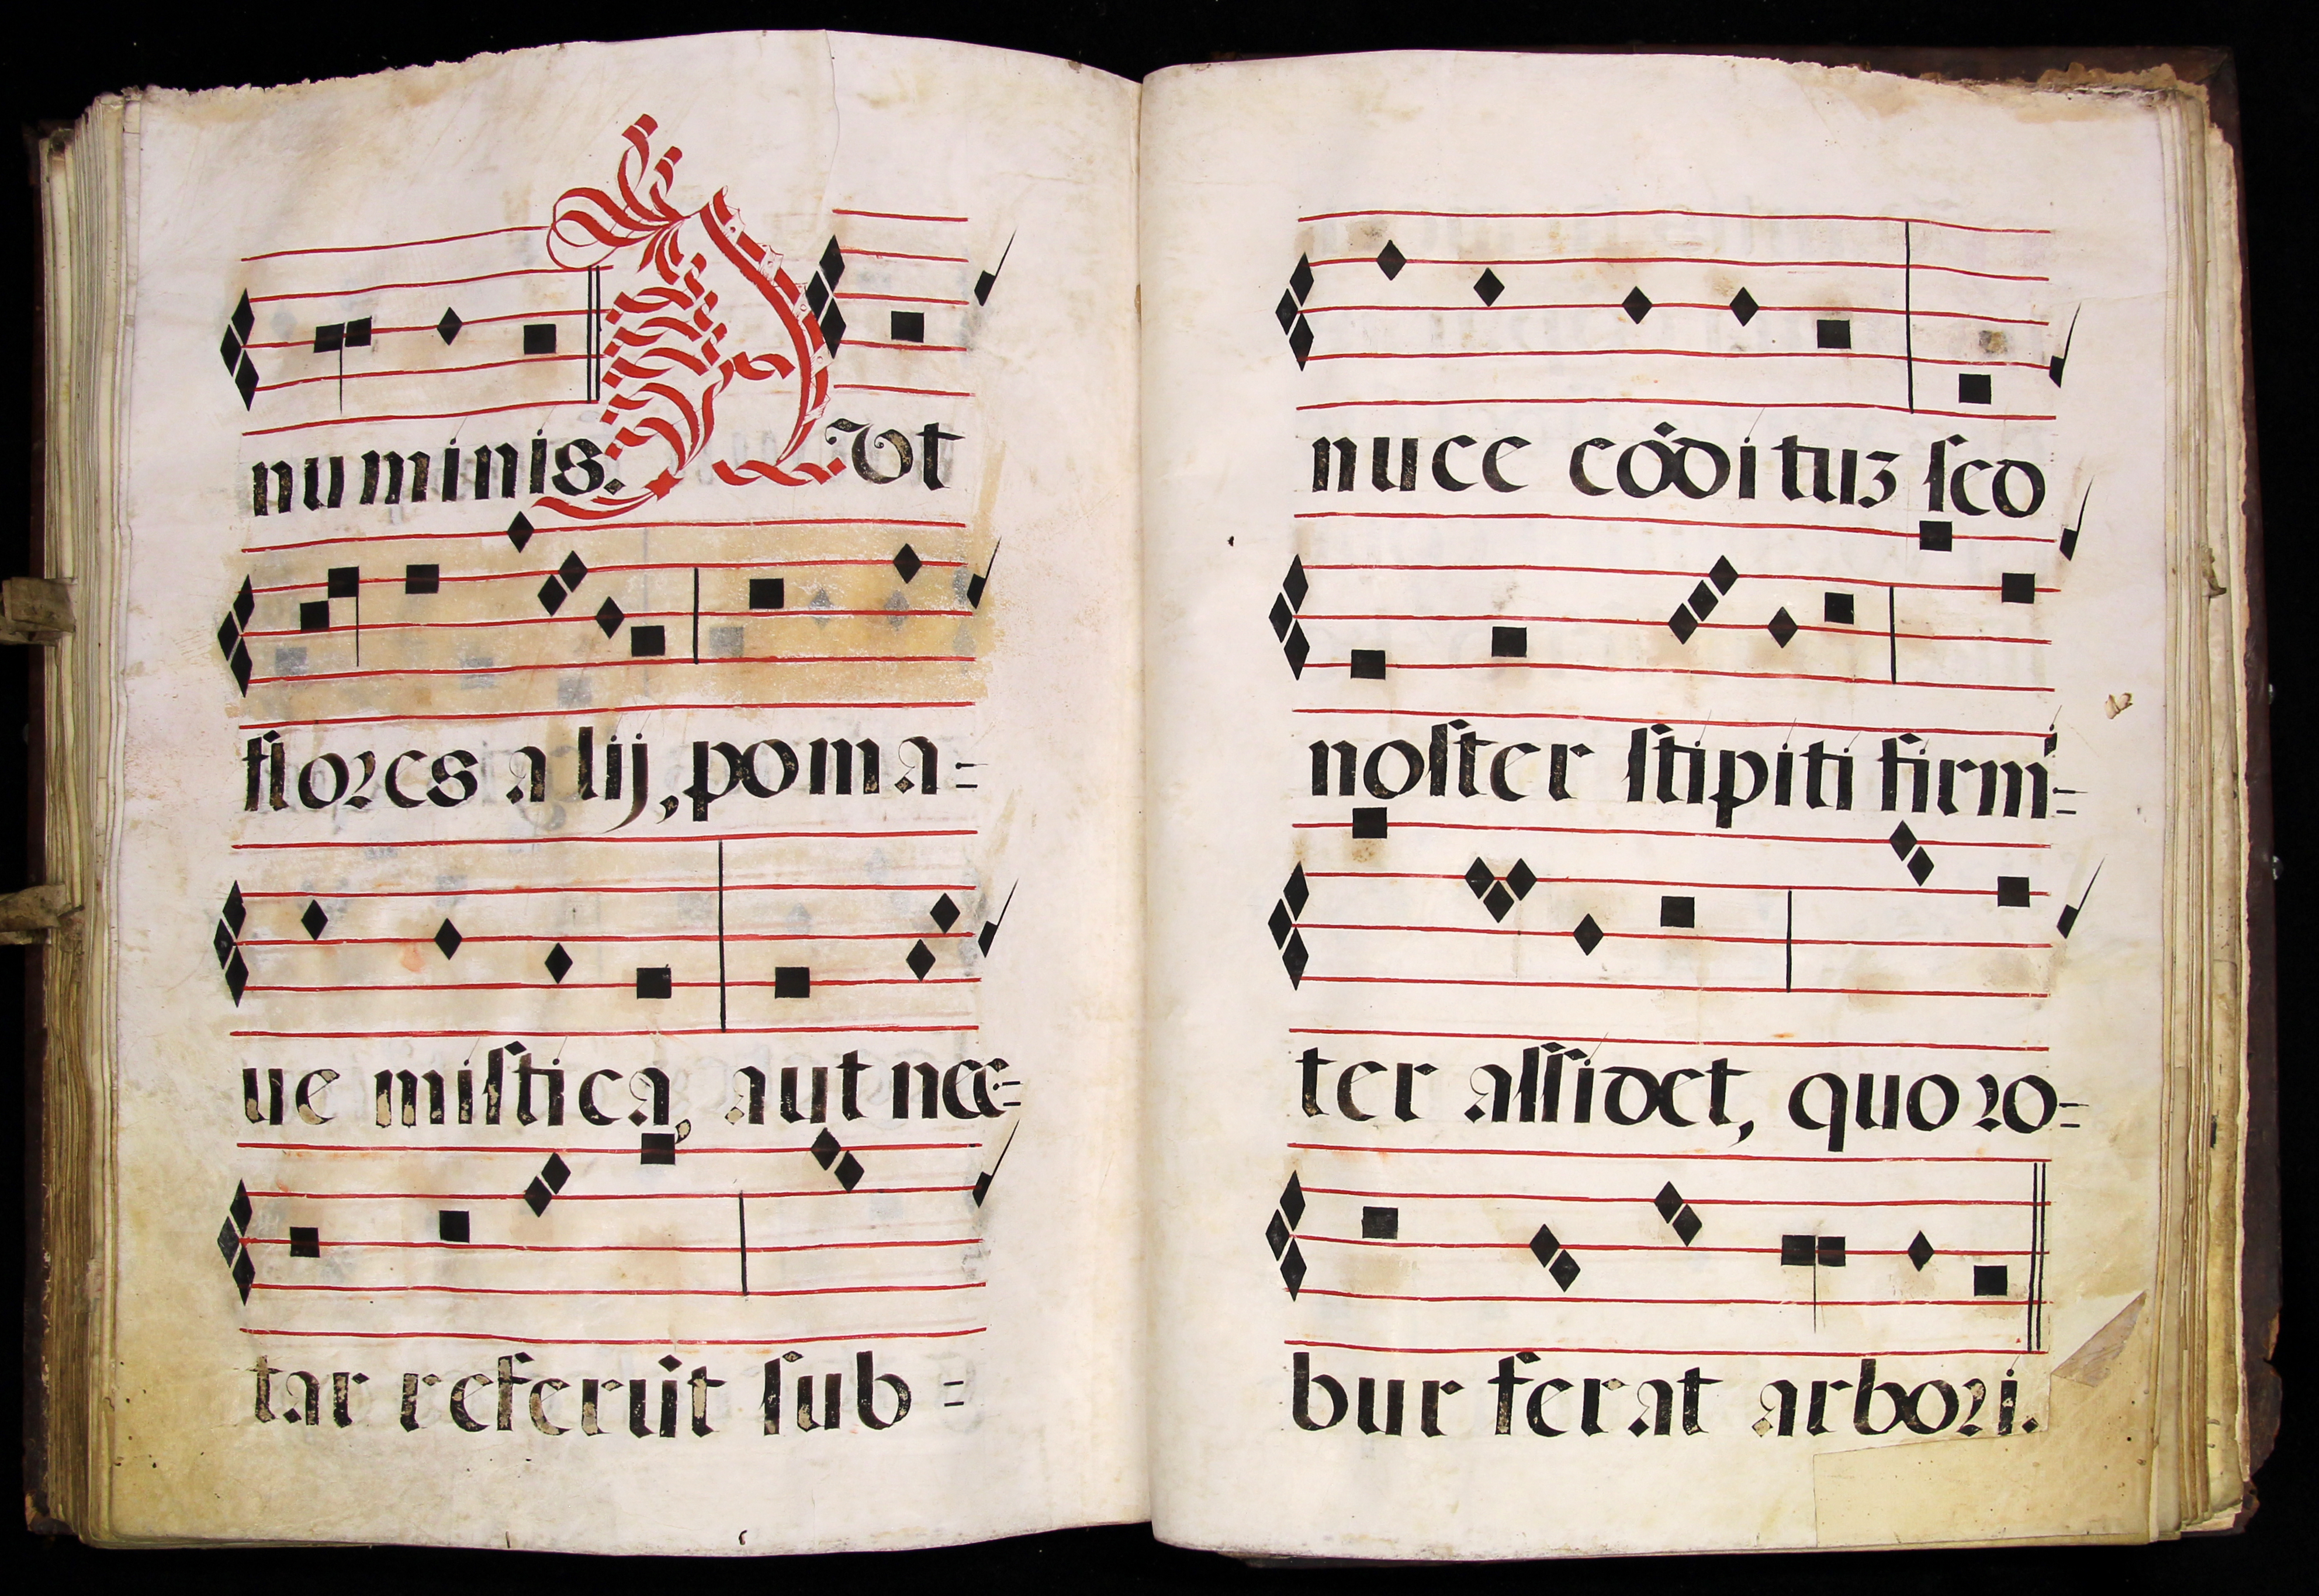 numinis. Avt
flores alij, poma=
ue miſtica, aut nec=
tar referūt ſub=
nuce cōdituʒ ſed
noſter ſtipiti firmi=
ter aſſidet, quo ro=
bur ferat arbori.